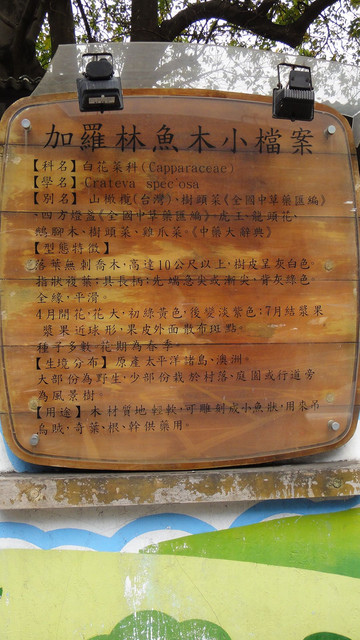 加羅林魚木小檔案
【科名】白花菜科(Capparaceae)
【學名】Crateva speciosa
【別名】山橄欖(台灣)、樹頭菜《全國中草藥匯編》
、四方燈盞《全國中草藥匯編》、虎王、龍頭花、
鵝腳木、樹頭菜、雞爪菜。《中藥大辭典》
【型態特徵】
落葉無刺喬木,高達10公尺以上,樹皮呈灰白色
指狀複葉;具長柄;先端急尖或漸尖,背灰綠色
全緣,平滑。
4月開花,花大,初綠黃色,後變淡紫色;7月結漿果
漿果近球形,果皮外面散有斑點。
種子多數,花期為春季。
【生境分布】原產太平洋諸島、澳洲。
大部份為野生,少部份栽於村落、庭園或行道旁
為風景樹
【用途】木材質地輕軟,可雕射成小魚狀,用來吊
烏賊,奇葉、根、幹供藥用。